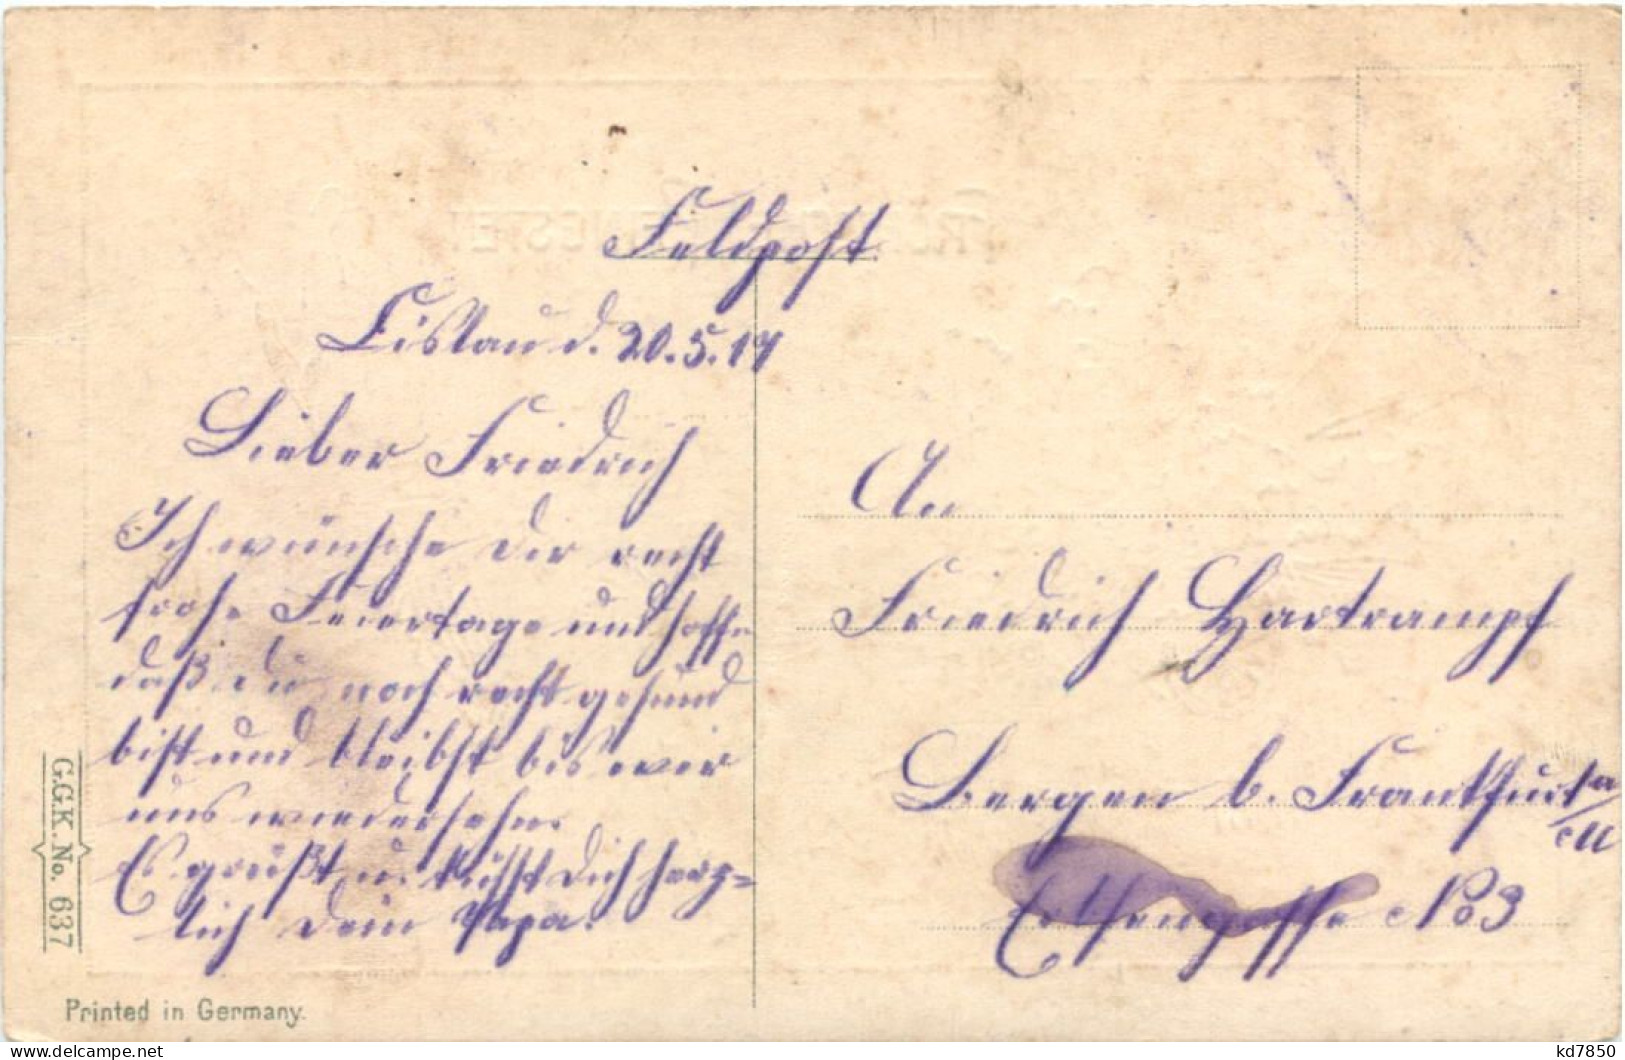 Feldpost
d. 20.5.17
Lieber Friedrich
Ich wünsche Dir recht
frohe Feiertage und hoffe
daß du noch recht gesund
bist und bleibst bis wir
uns wiedersehen.
Es grüßt u. küsst Dich herz=
lich Dein Papa.
An
Friedrich Hartrampf
Bergen b. Frankfurt a/M
No 3
G.G.K. No. 637
Printed in Germany.
kd7850